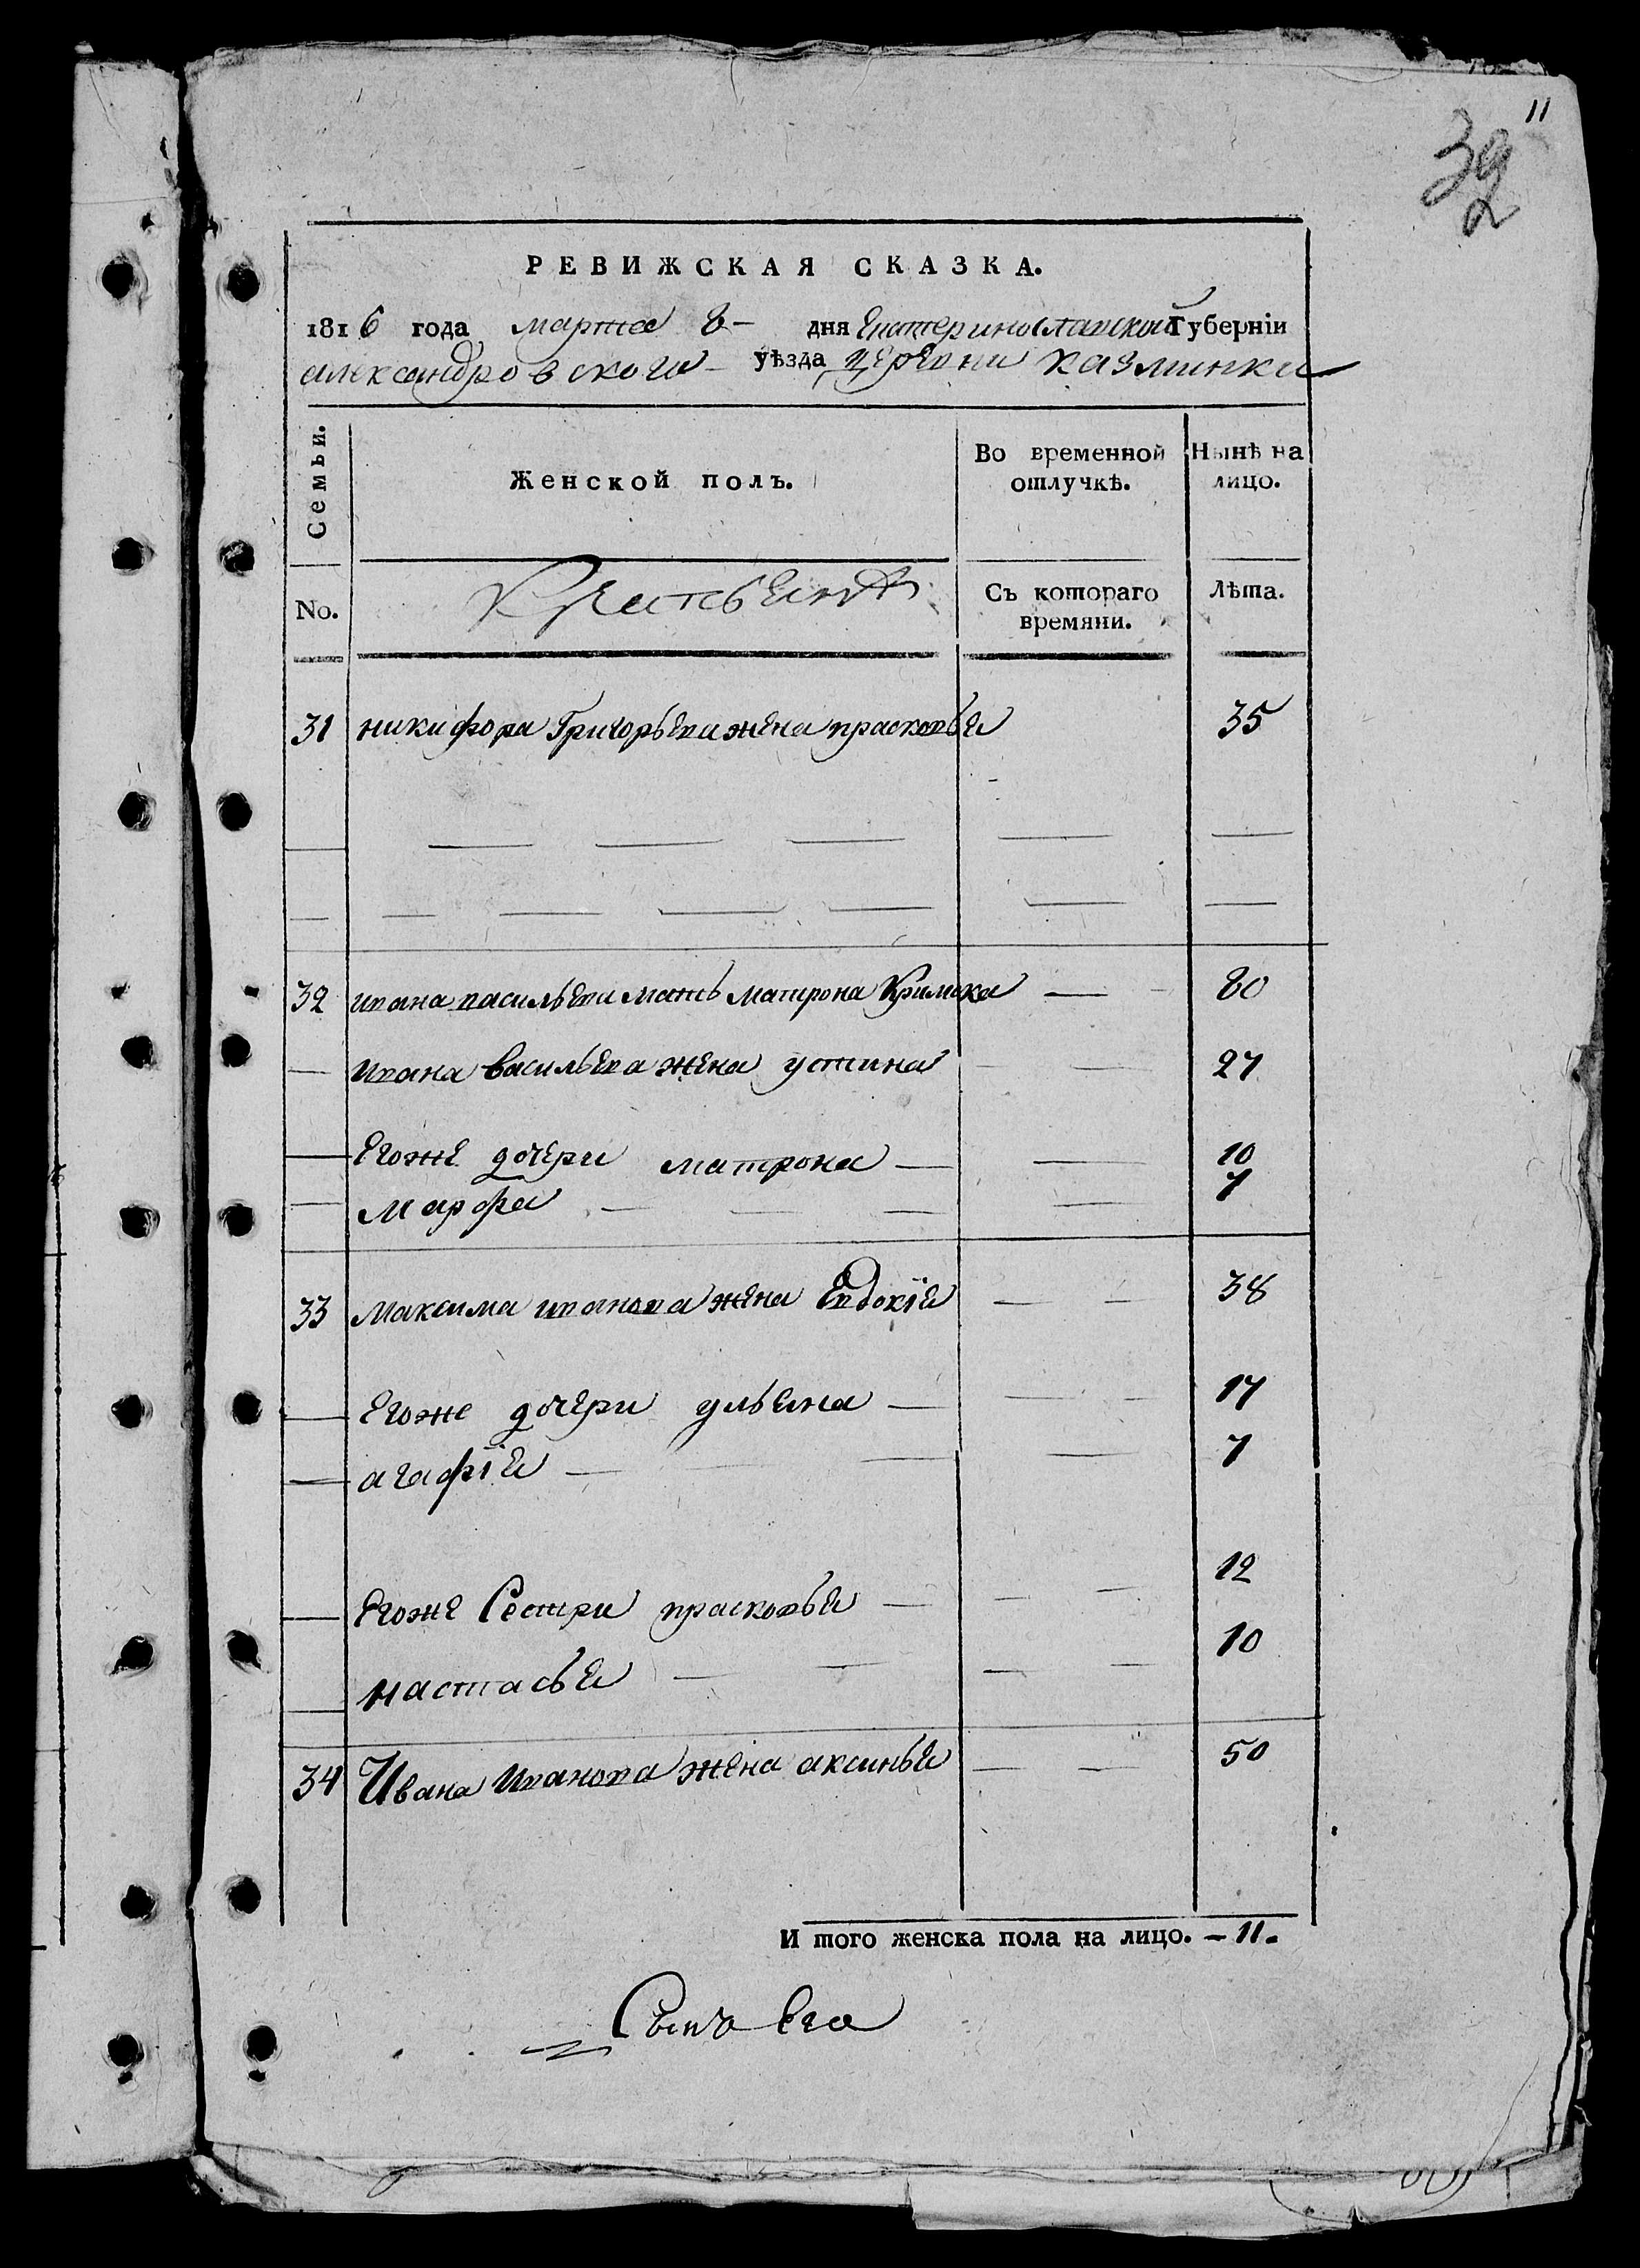 11
32
РЕВИЖСКАЯ СКАЗКА.
1816 года марта 8 – дня Екатеринославской Губерніи
александровского уѣзда деревни казминки
Семьи. Женской полъ. Во временной отлучкѣ. Нынѣ на лицо.
No. Крестьянъ Съ котораго времяни. Лѣта.
31 никифора Григорьева жена прасковья 35
32 ивана васильева мать матрона 80
ивана васильева жена устина 27
Егоже дочери матрона 10
марфа 7
33 максима иванова жена Евдокія 38
Егоже дочери ульяна 17
агафія 7
Егоже Сестри прасковья 12
настасья 10
34 Ивана иванова жена аксинья 50
И того женска пола на лицо. – 11.
Сынъ Его